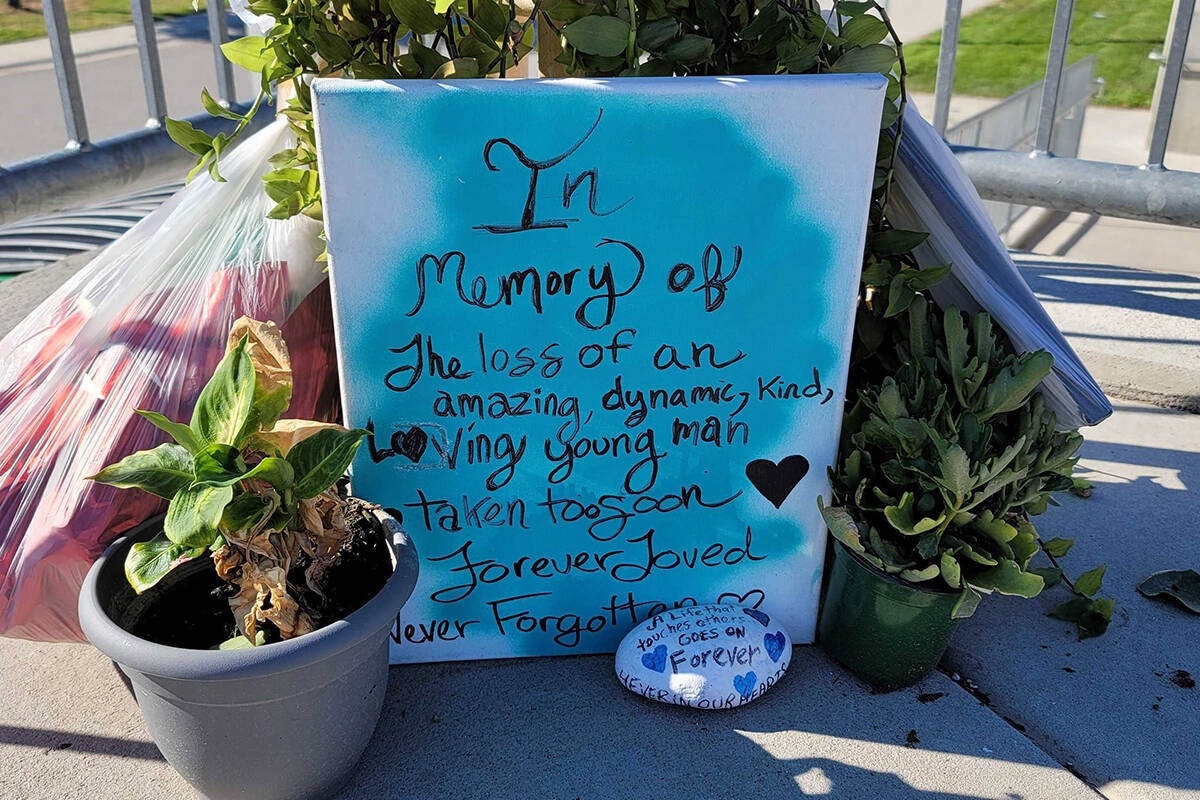 In
Memory of
The loss of an
amazing, dynamic, Kind,
Loving young man
taken too soon
Forever Loved
Never Forgotten
A Life that
touches others
GOES ON
Forever
4EVER IN OUR HEARTS